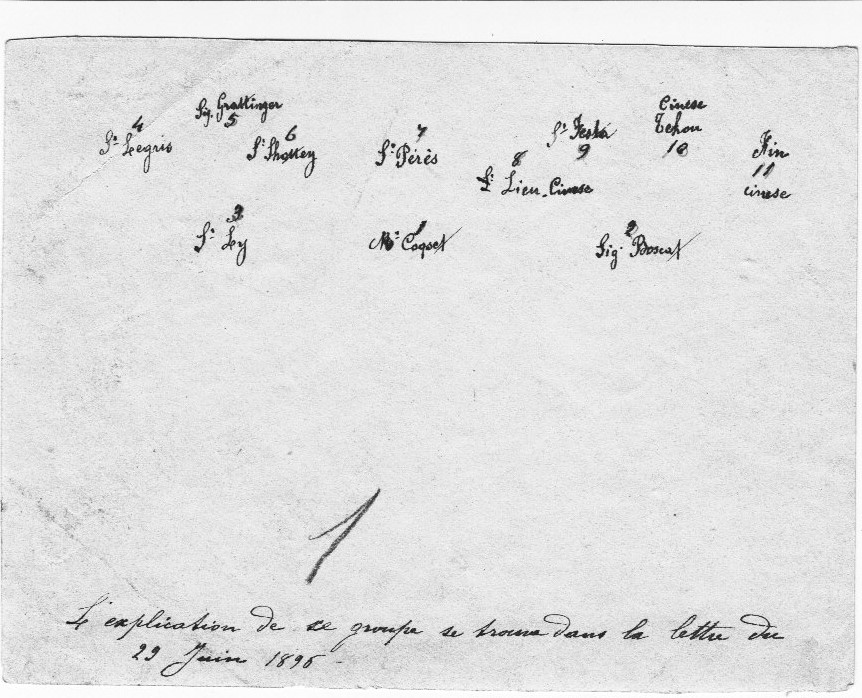 Cinese
Sig. Grattinger
Tchou
4 5 6 7 9 10
Sr. Legris Sr. Pérès Nin
8 11
Sr. Lieu. Cinese cinese
3 1 2
Sr. Ly Mr. Coqset Sig. Boscat
1
L'explication de ce groupe se trouve dans la lettre du
29 Juin 1896